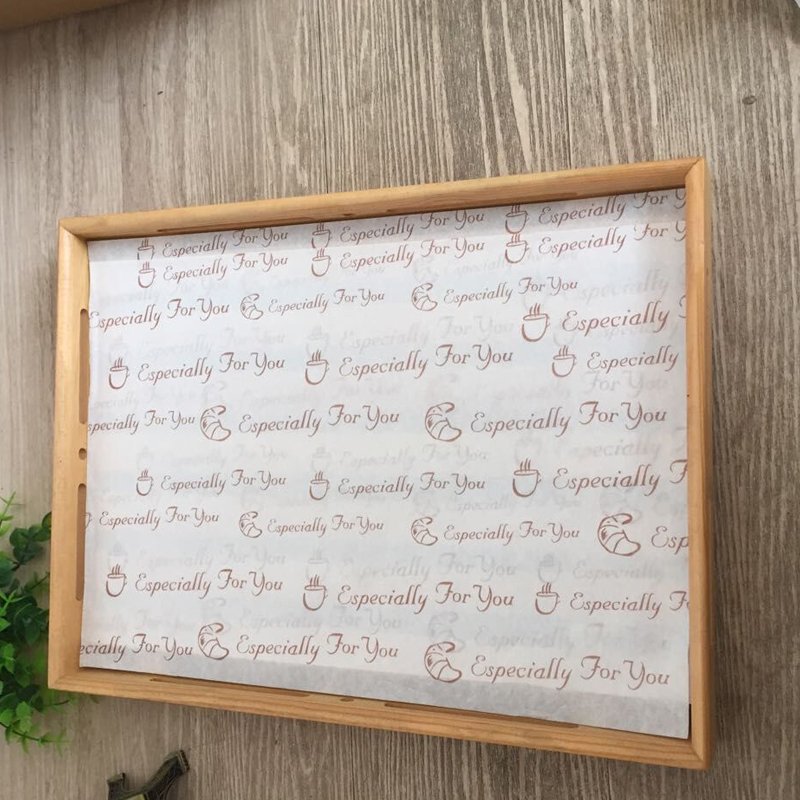 Especially For You Especially For You Especially For Y
Especially For You Especially For You Especially For Y
Especially For You Especially For You Especially For You
Especially F
Especially For You Especially For You Especially
specially For You Especially For You Especially For You
Especially For You Especially For You Especially F
Especially For You Especially For You Especially For You Esp
Especially For You Especially For You Especially F
ecially For You Especially For You Especially For You